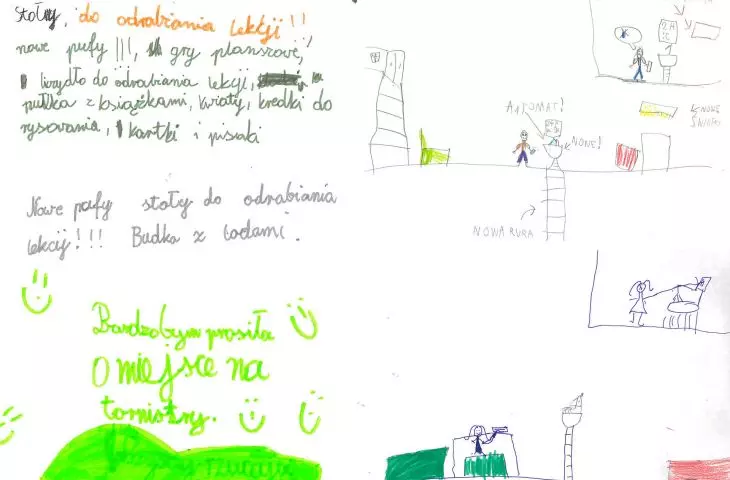 stoły, do odrabiania lekcji!!
nowe pufy !!!, gry planszowe,
krzydło do odrabiania lekcji,
pułka z książkami, kwiaty, kredki do
rysowania, kartki i pisaki
Nowe pufy stoły do odrabiania
lekcji!!! Budka z lodami.
Bardzobym prosiła
O miejsce na
tornistry.
AUTOMAT!
NONE!
NOWA RURA
NOWE